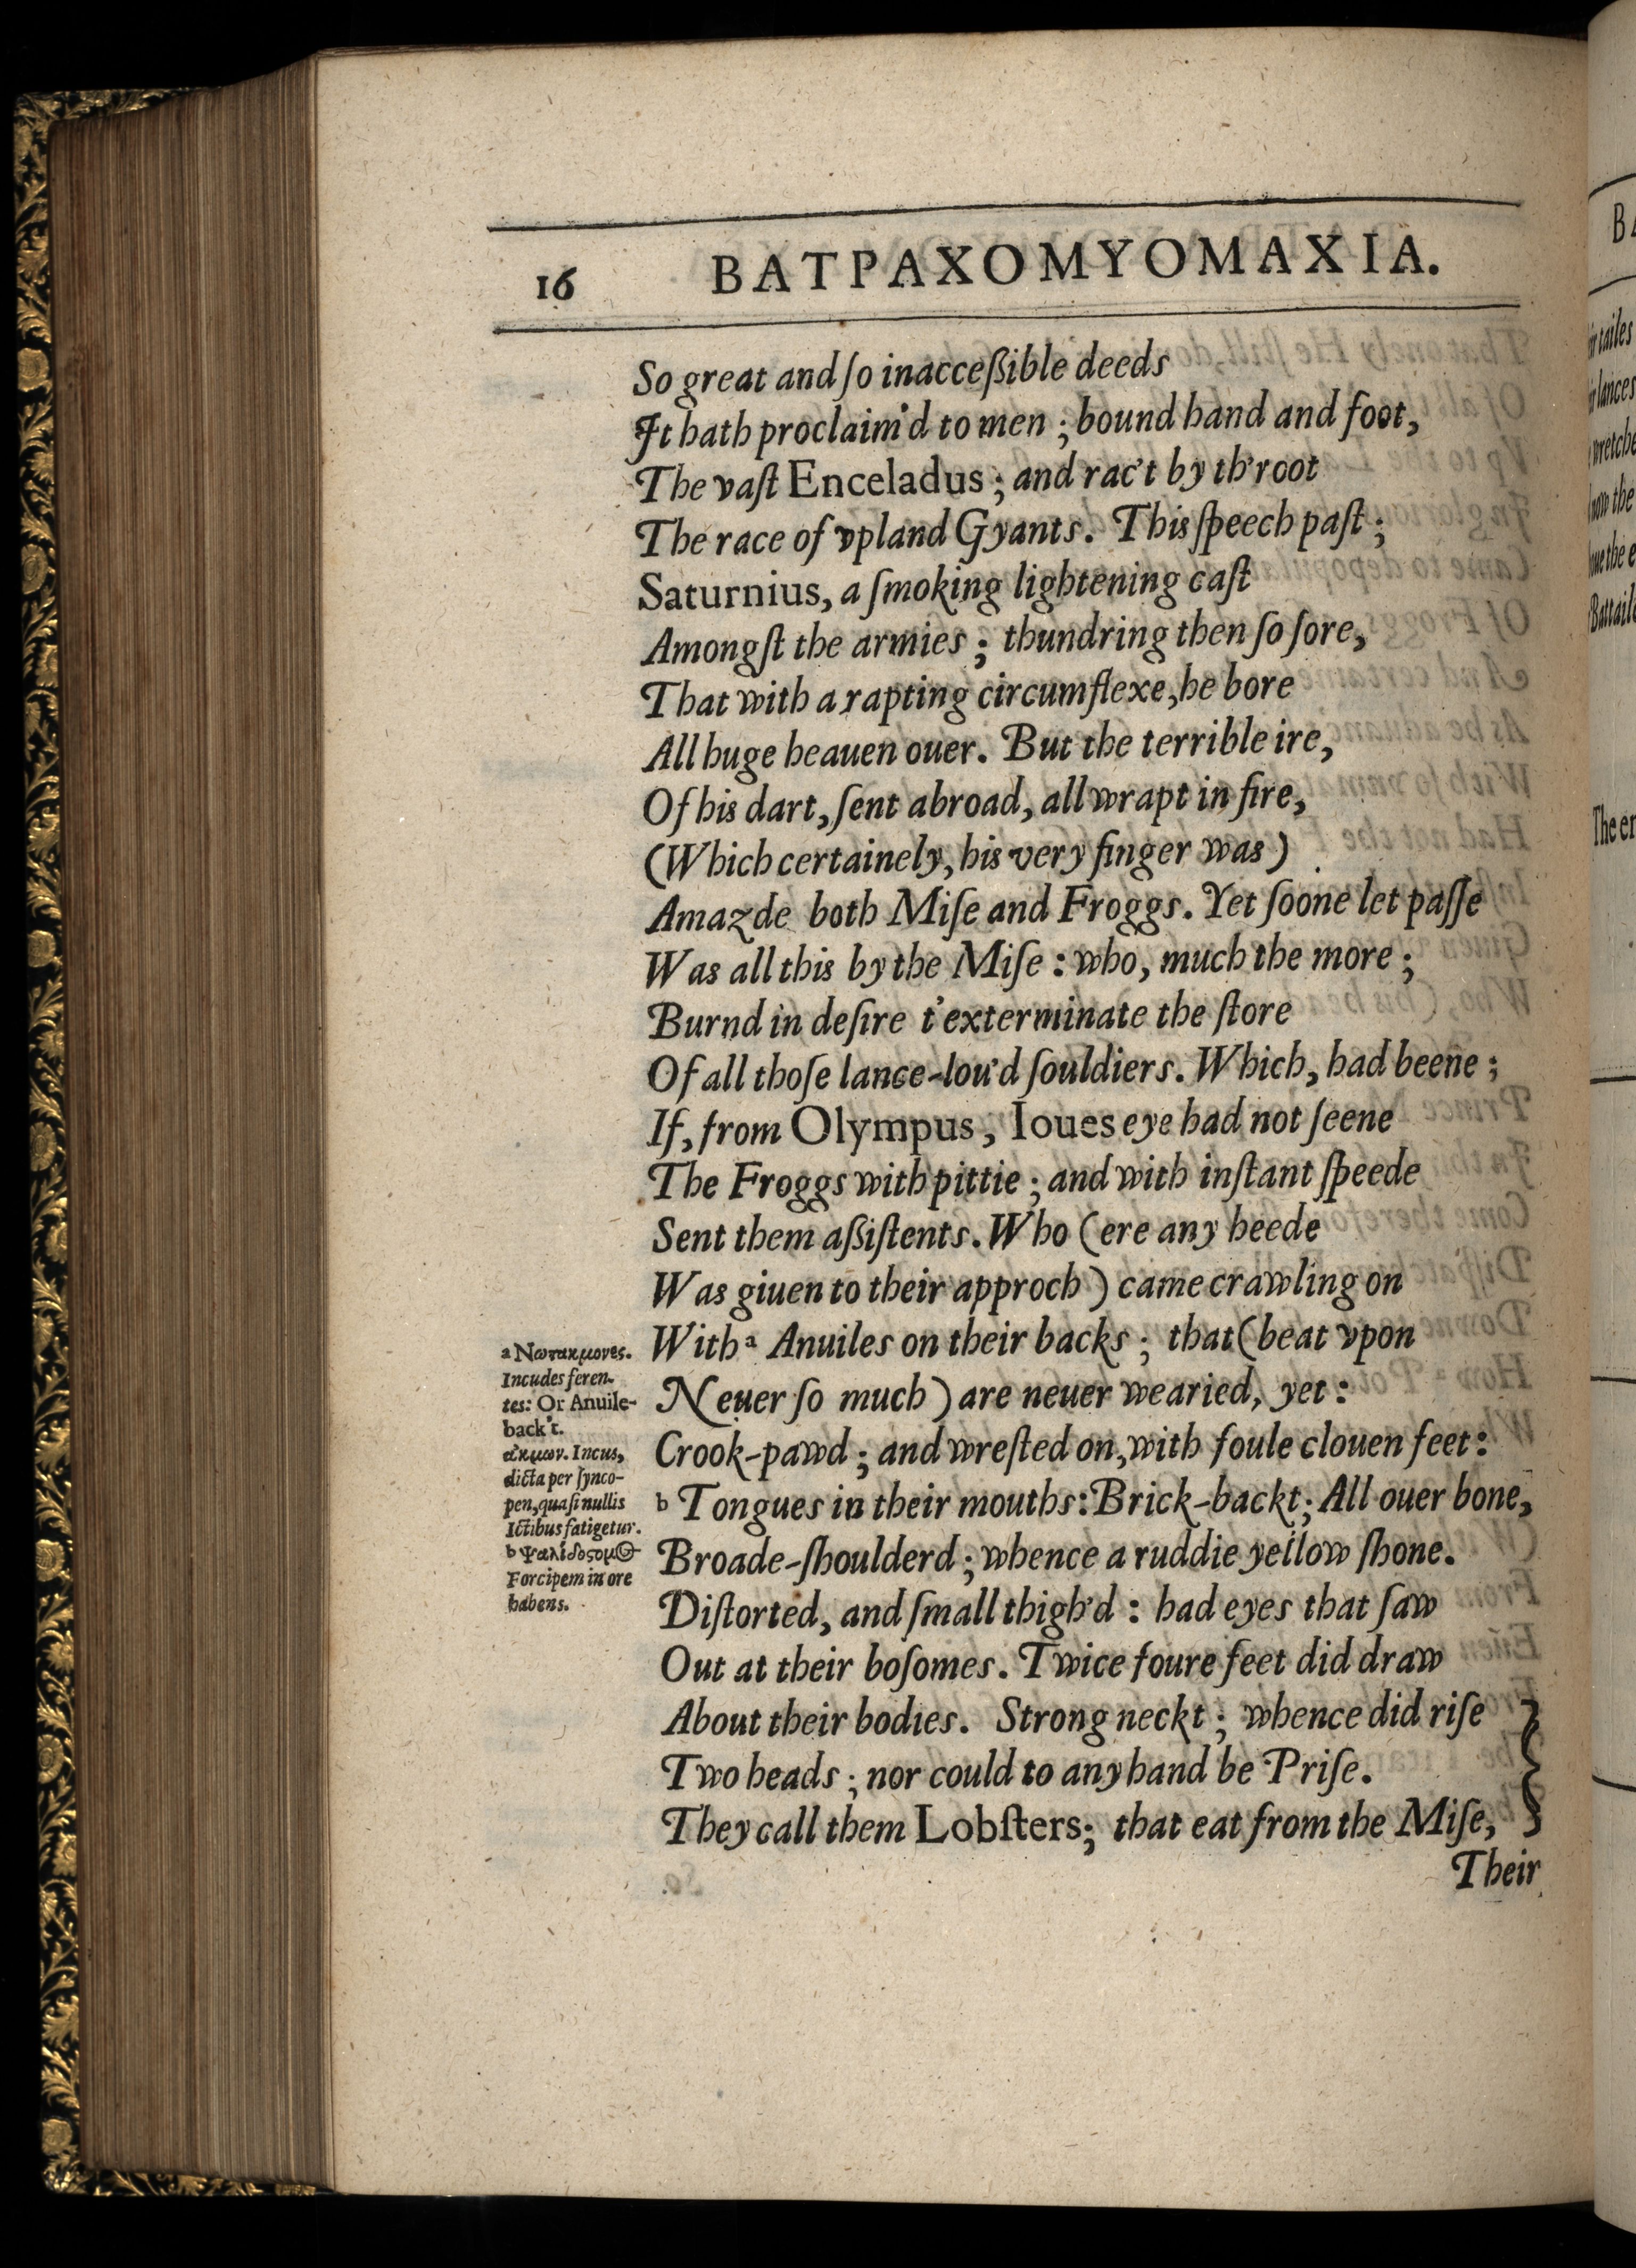 16 BATPAXOMYOMAXIA.
So great and ſo inacceßible deeds
It hath proclaim'd to men ; bound hand and foot,
The vaſt Enceladus ; and rac't by th'root
The race of vpland Gyants. This ſpeech paſt ;
Saturnius, a ſmoking lightening caſt
Amongſt the armies ; thundring then ſo ſore,
That with a rapting circumflexe, he bore
All huge heauen ouer. But the terrible ire,
Of his dart, ſent abroad, all wrapt in fire,
(Which certainely, his very finger was)
Amazde both Miſe and Froggs. Yet ſoone let paſſe
Was all this by the Miſe : who, much the more ;
Burnd in deſire t'exterminate the ſtore
Of all thoſe lance-lou'd ſouldiers. Which, had beene ;
If, from Olympus, Ioues eye had not ſeene
The Froggs with pittie ; and with inſtant ſpeede
Sent them aßiſtents. Who (ere any heede
Was giuen to their approch ) came crawling on
With a Anuiles on their backs ; that (beat vpon
Neuer ſo much ) are neuer wearied, yet :
Crook-pawd ; and wreſted on, with foule clouen feet :
b Tongues in their mouths : Brick-backt ; All ouer bone,
Broade-ſhoulderd ; whence a ruddie yellow ſhone.
Diſtorted, and ſmall thigh'd : had eyes that ſaw
Out at their boſomes. Twice foure feet did draw
About their bodies. Strong neckt ; whence did riſe
Two heads ; nor could to any hand be Priſe.
They call them Lobſters; that eat from the Miſe,
Their
a Νωτακμονες.
Incudes feren-
tes: Or Anuile-
back't.
ακμων. Incus,
dicta per ſynco-
pen, quaſi nullis
Ictibus fatigetur.
b Ψαλίδοςομος
Forcipem in ore
habens.
BA
tailes
lances
wretche
how the
the e
Battaile
The en